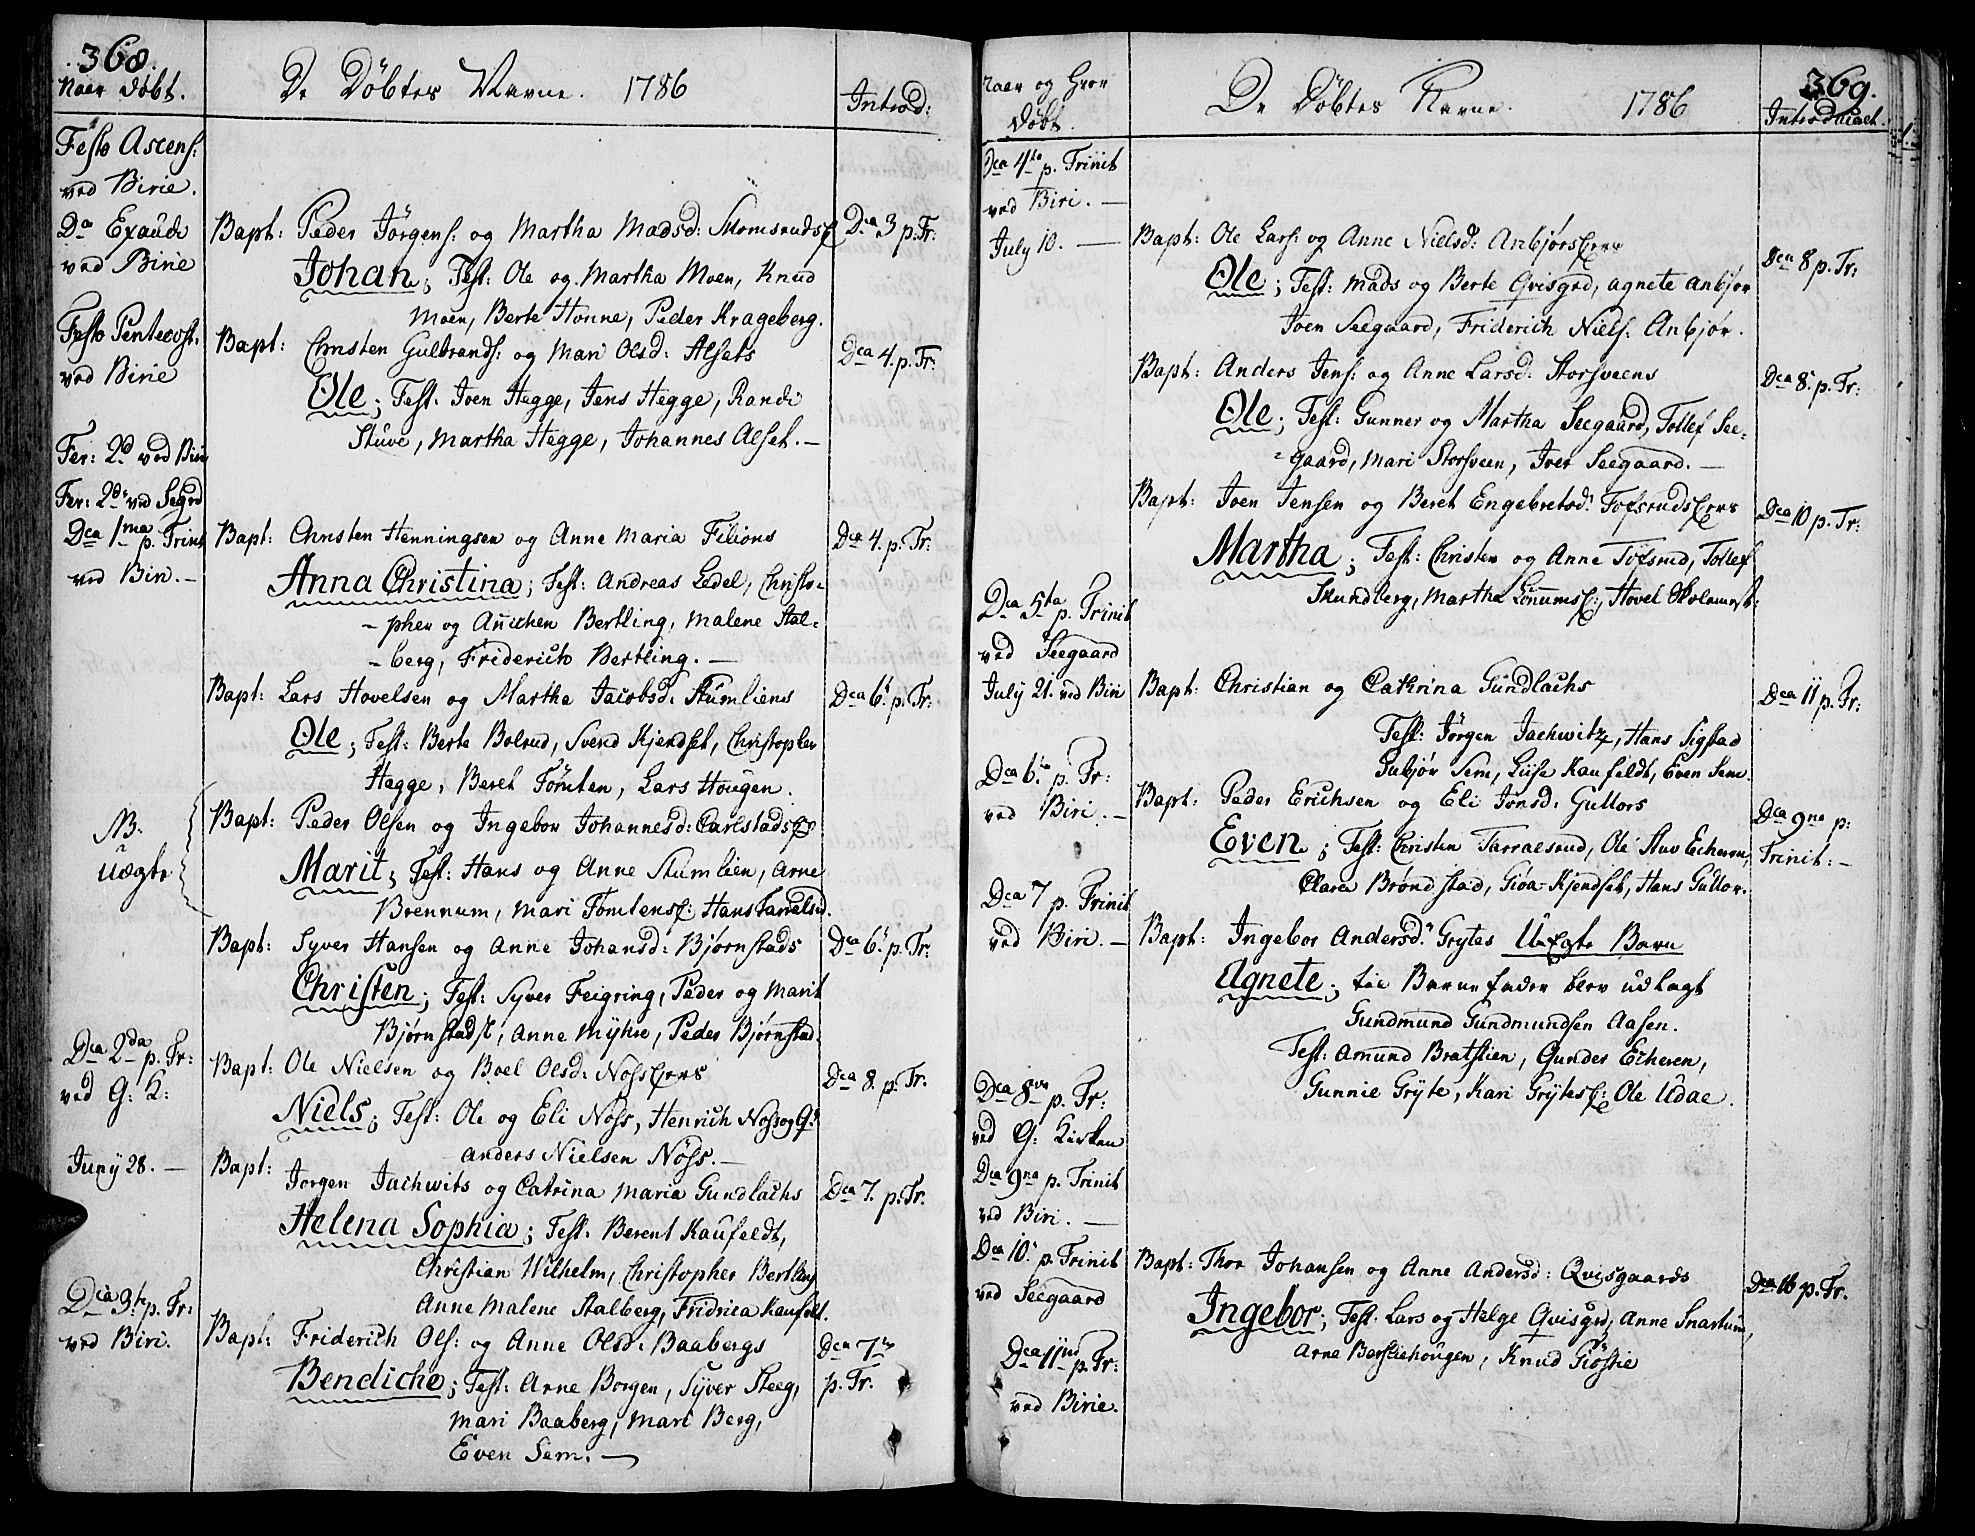 368.
Naar Døbt.
De Døbtes Navne. 1786
Introd:
Festo Ascens:
ved Birie.
Da Exaudi
ved Birie
Bapt: Peder Jörgens: og Martha Madsd: Skomsruds
Dca 3 p. Fr:
Johan; Test: Ole og Martha Moen, Knud
Moen, Berte Honne, Peder Krageberg.
Festo Pentecost:
ved Birie
Bapt: Christen Gulbrands: og Mari Olsd: Alsets
Dca 4. p. Tr:
Ole; Test: Joen Hegge, Jens Hegge, Randi
Stuve, Martha Hegge, Johannes Alset.
Fer: 2d ved Biri
Fer: 2d ved Segrd
Dca 1ma p. Trinit
ved Biri.
Bapt: Christen Henningsen og Anne Maria Filions
Dca 4. p. Tr:
Anna Christina; Test: Andreas Ledel, Christo-
-pher og Anichen Bertling, Malene Stal-
-berg, Friderich Bertling.
Bapt: Lars Hovelsen og Martha Jacobsd: Stumliens
Dca 6. p. Tr:
Ole; Test: Berte Bolrud, Svend Kjendset, Christopher
Hegge, Beret Tömten, Lars Hougen.
NB.
uægte
Bapt: Peder Olsen og Ingebor Johannesd: Carlstads
Marit; Test: Hans og Anne Stumlien, Arne
Brennum, Mari Tomtens: Hans Tarralsrd.
Bapt: Syver Hansen og Anne Johansd: Bjørnstads
Dca 6. p. Tr:
Christen; Test: Syver Feigring, Peder og Marit
Bjørnstads, Anne Myhre, Peder Bjørnstad.
Dca 2da p. Tr:
ved G: K:
Bapt: Ole Nielsen og Boel Olsd: Nøss
Dca 8. p. Tr:
Niels; Test: Ole og Eli Nøss, Henrich Nøss og
Anders Nielsen Nøss.
Juny 28.
Bapt: Jorgen Jachwits og Catrina Maria Gundlachs
Dca 7. p: Tr.
Helena Sophia; Test: Berent Kaufeldt,
Christian Wilhelm, Christopher Bertling
Anne Malene Stalberg, Fridrica Kaufelt.
Dca 3tia p. Tr:
ved Biri.
Bapt: Friderich Ols: og Anne Olsd: Baabergs
Dca 7
p. Tr.
Bendiche; Test: Arne Borgen, Syver Steeg,
Mari Baaberg, Mari Berg,
Even Sem.
369.
Naar og Hvor
Døbt.
De Døbtes Navne. 1786
Introduceret.
Dca 4ta p. Trinit
ved Biri.
July 10.
Bapt: Ole Lars: og Anne Nielsd: Anbjørs
Dca 8 p. Tr:
Ole; Test: Mads og Berte Qvisgrd, Agnete Anbjør
Joen Seegaard, Friderich Niels: Anbjør.
Bapt: Anders Jens: og Anne Larsd: Storsveens
Dca 8. p. Tr:
Ole; Test: Gunner og Martha Seegaard, Tollef See-
-gaard, Mari Storsveen, Iver Seegaard.
Bapt: Joen Jensen og Beret Engebretsd: Tofsruds
Dca 10 p. Tr:
Martha; Test: Christen og Anne Tofsrud, Tollef
Skundberg, Martha Lönums: Hovel Skolemest:
Dca 5ta p. Trinit
ved Seegaard
July 21. ved Biri
Bapt: Christian og Cathrina Gundlachs
Dca 11 p. Tr:
Test: Jörgen Jachwitz, Hans Sigstad
Gubjør Sem, Lise Kaufeldt, Even Sem.
Dca 6ta p. Tr:
ved Biri.
Bapt: Peder Erichsen og Eli Jonsd: Gullors
Dca 9na p:
Trinit:
Even; Test: Christen Tarralsrud, Ole Stuv Echeren,
Clara Brøndstad, Giøa Kjendset, Hans Gullor.
Dca 7 p. Trinit
ved Biri.
Bapt: Ingebor Andersd: Grytes UEgte Barn
Agnete; til Barnefader blev udlagt
Gundmund Gundmundsen Aasen.
Test: Amund Bratlien, Gunder Echeren,
Gunnie Gryte, Kari Grytes: Ole Udae.
Dca 8va p. Tr:
ved G: Kirken
Dca 9na p. Trinit
ved Biri.
Dca 10. p. Trinit
ved Seegaard
Bapt: Thor Johansen og Anne Andersd: Qvisgaards
Dca 16 p. Tr.
Ingebor; Test: Lars og Helge Qvisgrd, Anne Snartum,
Arne Barsliehougen, Knud Giöstie
Dca 11 p. Tr:
ved Birie.